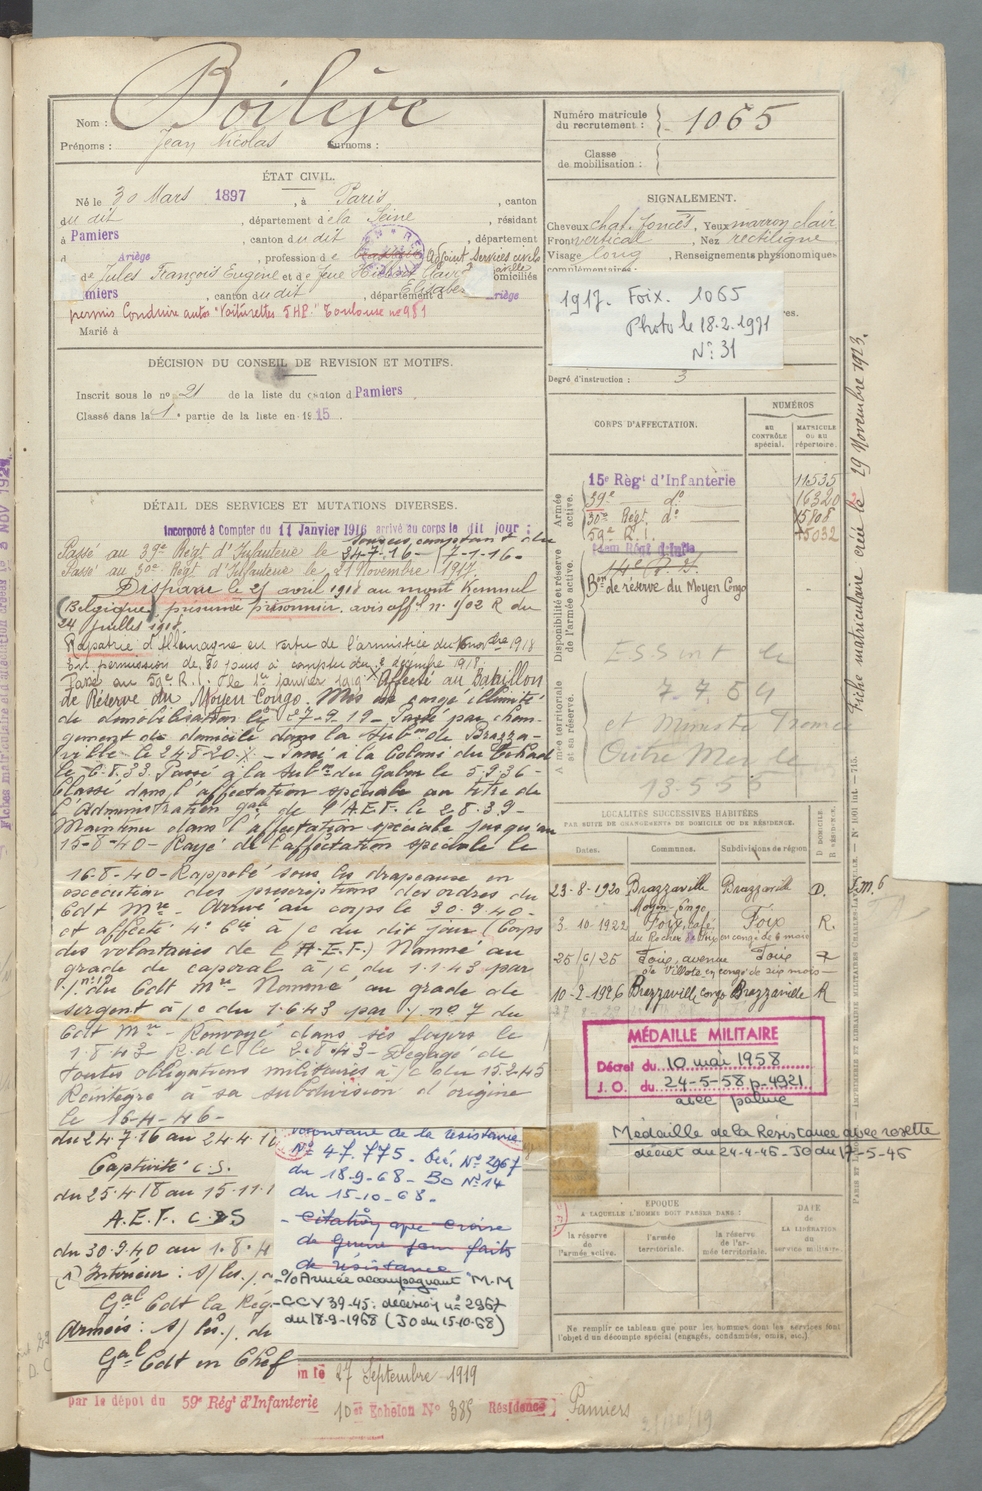 Nom : Boilève
Prénoms : Jean Nicolas Surnoms :
Numéro matricule du recrutement : 1065
Classe de mobilisation :
ÉTAT CIVIL.
Né le 30 Mars 1897, à Paris, canton
du dit, département de la Seine, résidant
à Pamiers, canton du dit, département
d Ariège, profession de Adjoint Services civils
de Jules François Eugène et de domiciliés
miers, canton du dit, département d Ariège
permis Conduire autos "Voiturettes 5 HP." Toulouse n° 981
Marié à
SIGNALEMENT.
Cheveux chat. foncés, Yeux marron clair
Front vertical, Nez rectiligne
Visage long, Renseignements physionomiques
complémentaires :
1917. Foix. 1065
Photo le 18.2.1971
N° 31
Degré d'instruction : 3
DÉCISION DU CONSEIL DE REVISION ET MOTIFS.
Inscrit sous le n° 21 de la liste du canton d Pamiers
Classé dans la 1e partie de la liste en 1915
CORPS D'AFFECTATION.
NUMÉROS
AU CONTRÔLE spécial.
MATRICULE OU AU répertoire.
Armée active.
15e Régt d'Infanterie 11535
39e do 16320
30e Régt. do 15808
59e R.I. 15032
Disponibilité et réserve de l'armée active.
14e R.I.
Bon de réserve du Moyen Congo
Armée territoriale et sa réserve.
7.7.54
et Ministre France
Outre Mer le
13.5.55
Fiche matriculaire créée le 29 Novembre 1923.
DÉTAIL DES SERVICES ET MUTATIONS DIVERSES.
Incorporé à Compter du 11 Janvier 1916 arrivé au corps le dit jour ;
Passé au 39e Régt d'Infanterie le 24-7-16-
Passé au 30e Régt d'Infanterie le 21 Novembre 1917.
Disparu le 25 avril 1918 au mont Kemmel
(Belgique) présumé prisonnier. avis offel n° 1502 R du
24 juillet 1918.
Rapatrié d'Allemagne en vertu de l'armistice du 16 novbre 1918
En permission de 30 jours à compter du décembre 1918.
Passé au 59e R.I. le 1er janvier 1919 Affecté au Bataillon
de Réserve du Moyen Congo. Mis en congé illimité
de démobilisation le 27-9-19- Passé par chan-
gement de domicile dans la Subon de Brazza-
ville le 24-8-20. - Passé à la Colonie du Tchad
le 6.8.33. Passé à la subon du Gabon le 5.9.36-
Classé dans l'affectation spéciale au titre de
l'Administration gale de l'A.E.F. le 28.39-
Maintenu dans l'affectation spéciale jusqu'au
15-8-40- Rayé de l'affectation spéciale le
16.8-40- Rappelé sous les drapeaux en
exécution des prescriptions des ordres du
Cdt Mre - Arrivé au corps le 30.9.40-
et affecté 4e Cie à /c du dit jour (Corps
des volontaires de l'A.E.F.) Nommé au
grade de caporal à /c du 1.1.43 par
du Cdt Mre - Nommé au grade de
sergent à /c du 1.6.43 par n° 7 du
Cdt Mre - Renvoyé dans ses foyers le
1.8.43- R.d.C le 2.8.43- Dégagé de
toutes obligations militaires à /c du 15.2.45
Réintégré à sa subdivision d'origine
le 16-4-46-
LOCALITÉS SUCCESSIVES HABITÉES
PAR SUITE DE CHANGEMENTS DE DOMICILE OU DE RÉSIDENCE.
Dates. Communes. Subdivisions de région. D. DOMICILE R. RÉSIDENCE.
23-8-1920 Brazzaville Moyen Congo Brazzaville D.
3.10.1922 Foix, café du Rocher en congé de 6 mois Foix R.
25/6/25 Foix, avenue de Villote, en congé de six mois Foix
10-2-1926 Brazzaville Congo Brazzaville R
MÉDAILLE MILITAIRE
Décret du 10 mai 1958
J.O. du 24-5-58 p. 4921
avec palme
Médaille de la Résistance avec rosette
décret du 24-4-46 - JO du 17-5-46
du 24.7.16 au 24.4.1
Captivité C.S.
du 25.4.18 au 15.11.1
A.E.F. C.S
du 30.9.40 au 1.8.4
Intérieur : s/ les
Gal Cdt la Rég.
Armées : s/ les
Gal Cdt en Chef
volontaire de la résistance
N° 47.775 - Déc. N° 2967
du 18-9-68 - BO N° 14
du 15-10-68-
- Citation avec Croix
de Guerre pour faits
de résistance
o/o Armée accompagnant M.M
- CCV 39-45 : décision n° 2967
du 18-9-1968 (JO du 15.10.68)
EPOQUE
A LAQUELLE L'HOMME DOIT PASSER DANS :
la réserve de l'armée active.
l'armée territoriale.
la réserve de l'armée territoriale.
DATE de LA LIBÉRATION du service militaire.
Ne remplir ce tableau que pour les hommes dont les services font
l'objet d'un décompte spécial (engagés, condamnés, omis, etc.)
27 Septembre 1919
par le dépôt du 59e Régt d'Infanterie 10e Echelon N° 385 Résidence Pamiers